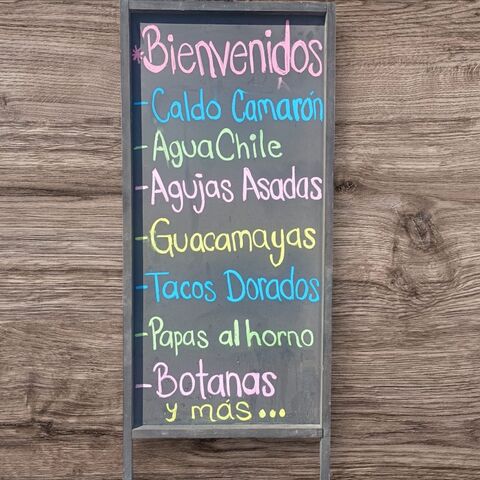 *Bienvenidos
-Caldo Camarón
-AguaChile
-Agujas Asadas
-Guacamayas
-Tacos Dorados
-Papas al horno
-Botanas
y más...